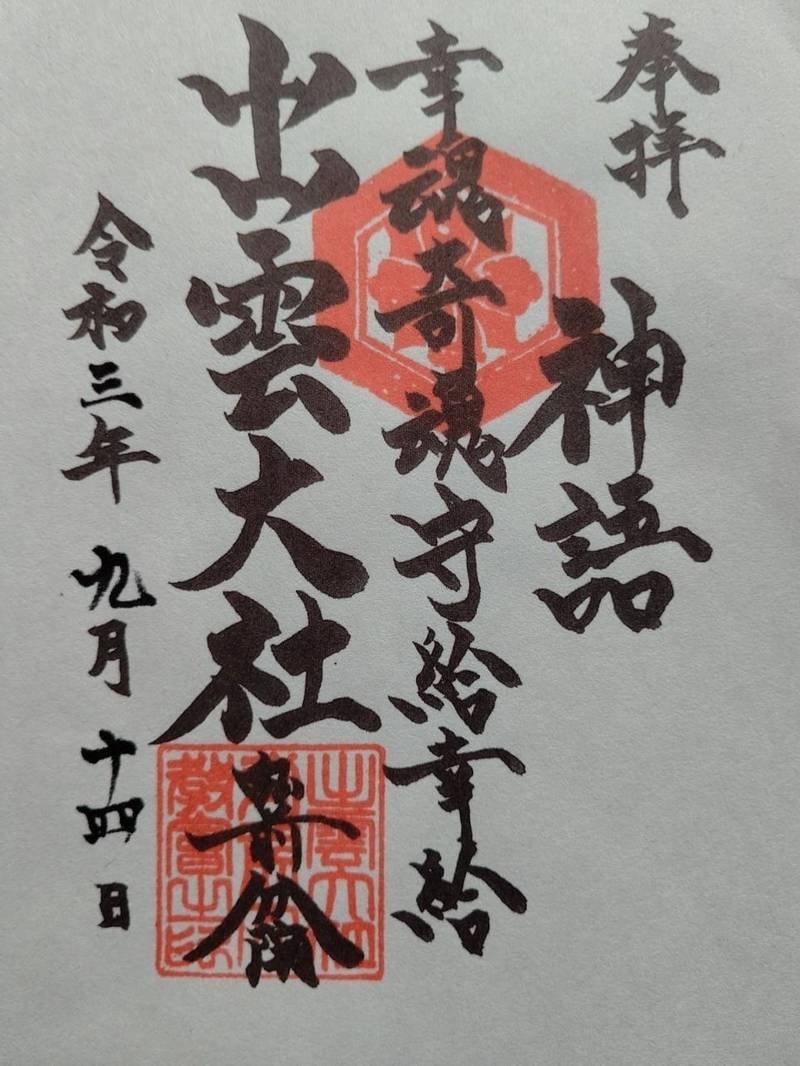 奉拝
神語
幸魂奇魂守給幸給
出雲大社
令和三年 九月 十四日
出雲大社
教會之印